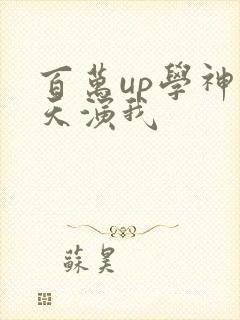 百萬up學神
天演我
蘇昊